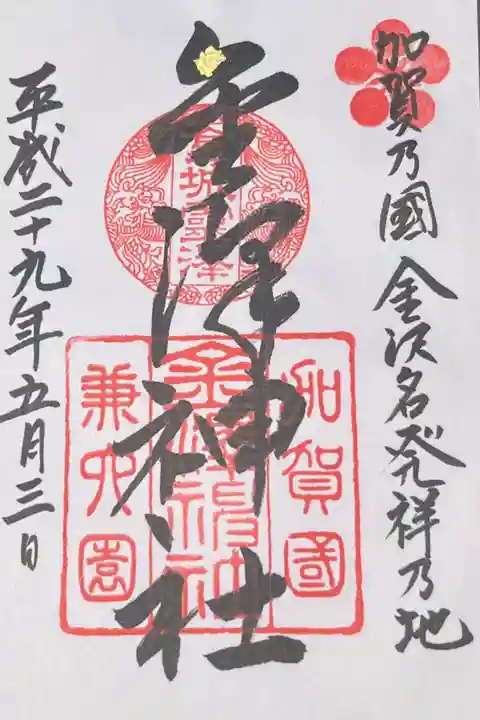 加賀乃國 金沢名発祥乃地
金澤神社
平成二十九年五月三日
加賀國
兼六園